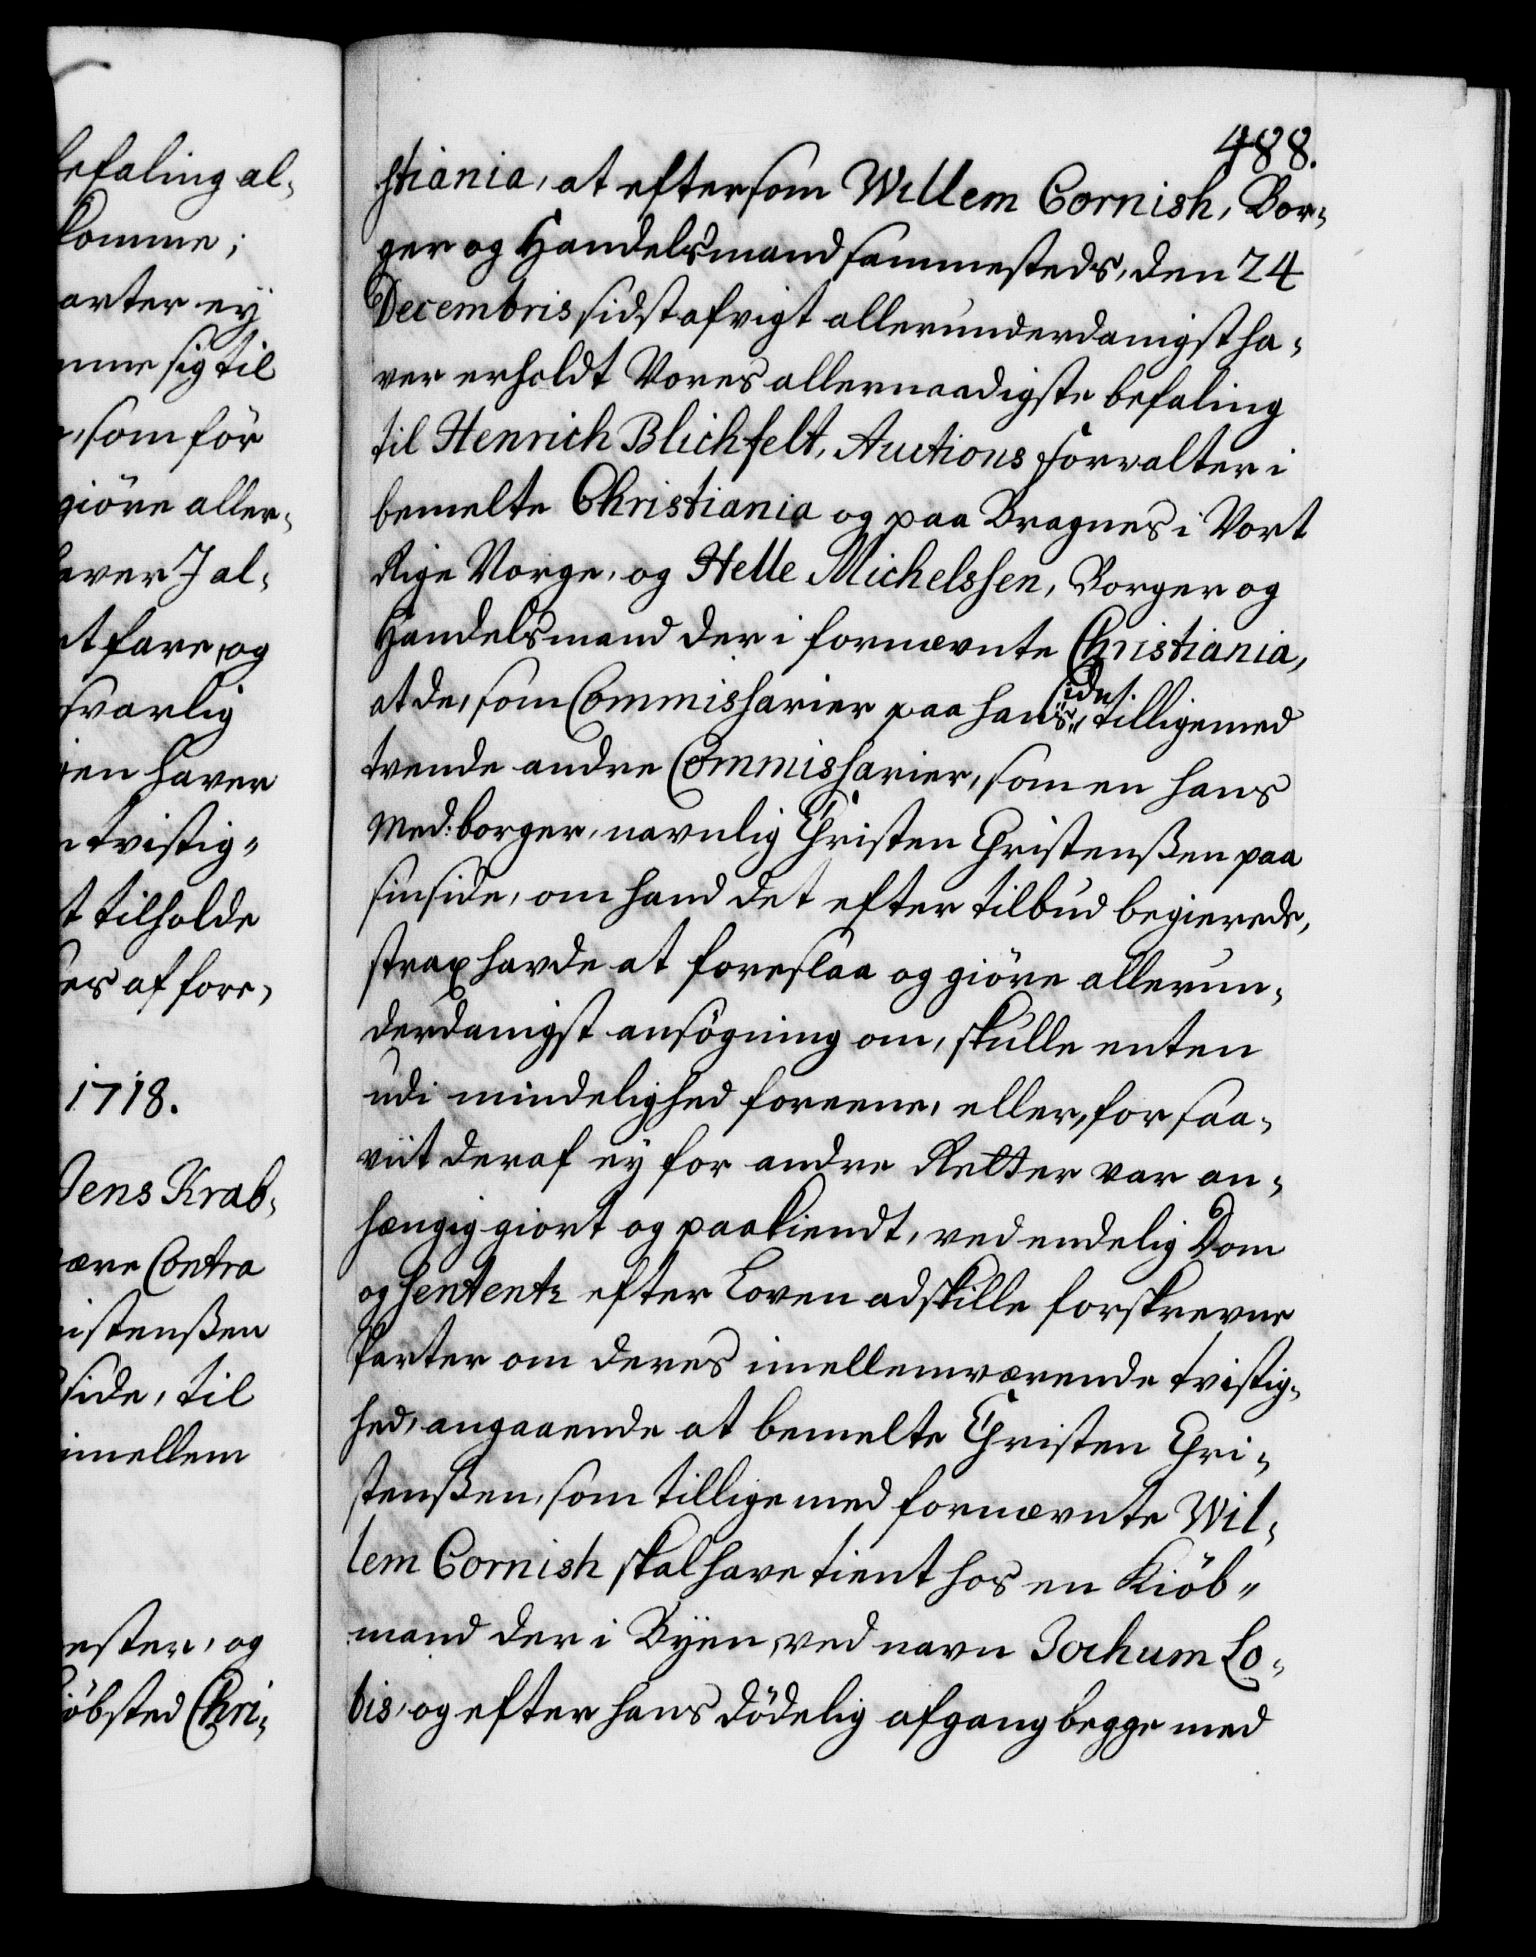 befaling al-
komme;
arter ey
nme sig til
, som för
giöre aller-
haver I al-
at fare, og
svarlig
gen haver
n tvistig-
t tilholde
es af fore-
1718.
Jens Krab-
ære Contra
istenßen
side, til
imellem
ester, og
iöbsted Chri-
488.
stiania, at eftersom Willem Cornish, Bor-
ger og Handelsmand sammesteds, den 24
Decembris sidstafvigt allerunderdanigst ha-
ver erholdt Vores allernaadigste befaling
til Henrich Blichfelt, Auctions forvalter i
bemelte Christiania og paa Bragnes i Vort
Rige Norge, og Helle Michelssen, Borger og
Handelsmand der i fornævnte Christiania,
side/.
at de, som Commissarier paa hans tilligemed
tvende andre Commissarier, som en hans
Med:borger, navnlig Christen Christenßen paa
sin side, om hand det efter tilbud begierede,
strax havde at foreslaa og giöre allerun-
derdanigst ansögning om, skulle enten
udi mindelighed foreene, eller, for saa-
vit deraf ey for andre Retter var an-
hængig giort og paakiendt, ved endelig Dom
og Sententz efter Loven adskille forskrevne
Parter om deres imellemværende tvistig-
hed, angaaende at bemelte Christen Chri-
stenßen, som tillige med fornævnte Wil-
lem Cornish skal have tient hos en Kiöb-
mand der i Byen, ved navn Jochum Lo-
bis, og efter hans dödelig afgang begge med